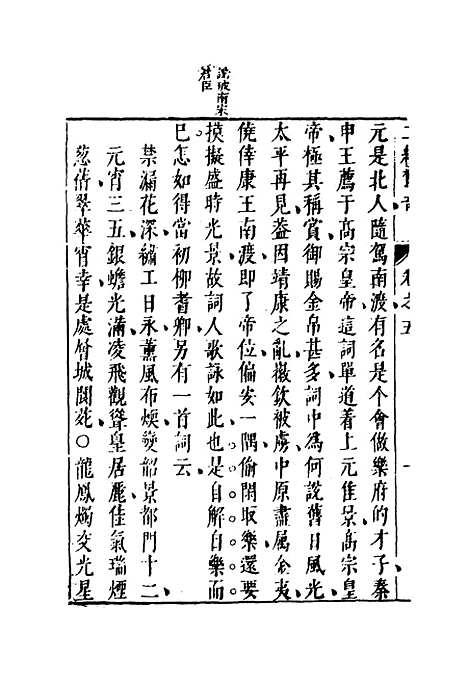 說破南宋
君臣
二刻驚奇 卷之五 一
元是北人隨駕南渡有名是个會做樂府的才子秦
申王薦于高宗皇帝這詞單道着上元佳景高宗皇
帝極其稱賞御賜金帛甚多詞中爲何說舊日風光
太平再見蓋因靖康之亂徽欽被虜中原盡屬金夷
僥倖康王南渡即了帝位偏安一隅偷閒取樂還要
摸擬盛時光景故詞人歌詠如此也是自解自樂而
已怎如得當初柳耆卿另有一首詞云
禁漏花深繡工日永薰風布煖變韶景都門十二
元宵三五銀蟾光滿凌飛觀聳皇居麗佳氣瑞煙
葱蒨翠華宵幸是處層城閬苑〇龍鳳燭交光星